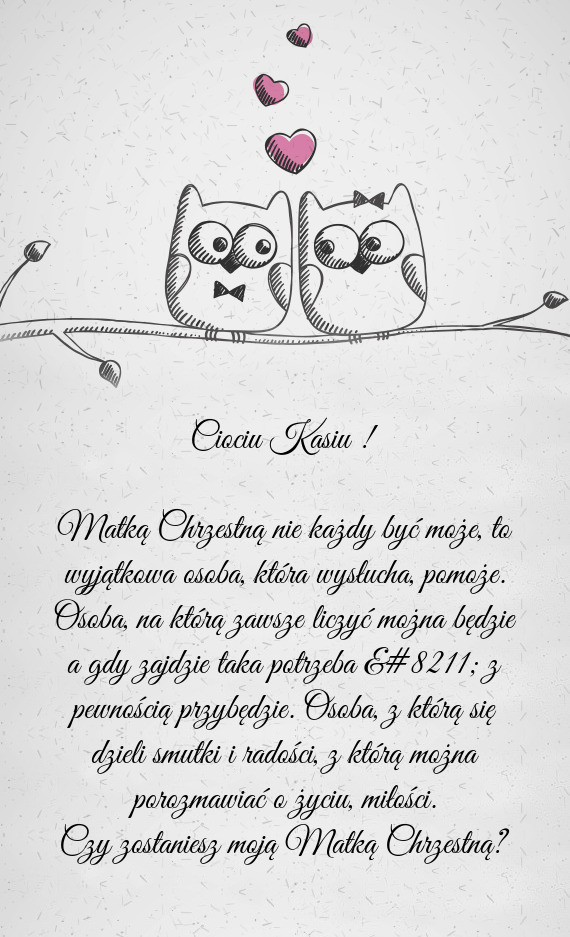 Ciociu Kasiu !
Matką Chrzestną nie każdy być może, to
wyjątkowa osoba, która wysłucha, pomoże.
Osoba, na którą zawsze liczyć można będzie
a gdy zajdzie taka potrzeba &#8211; z
pewnością przybędzie. Osoba, z którą się
dzieli smutki i radości, z którą można
porozmawiać o życiu, miłości.
Czy zostaniesz moją Matką Chrzestną?